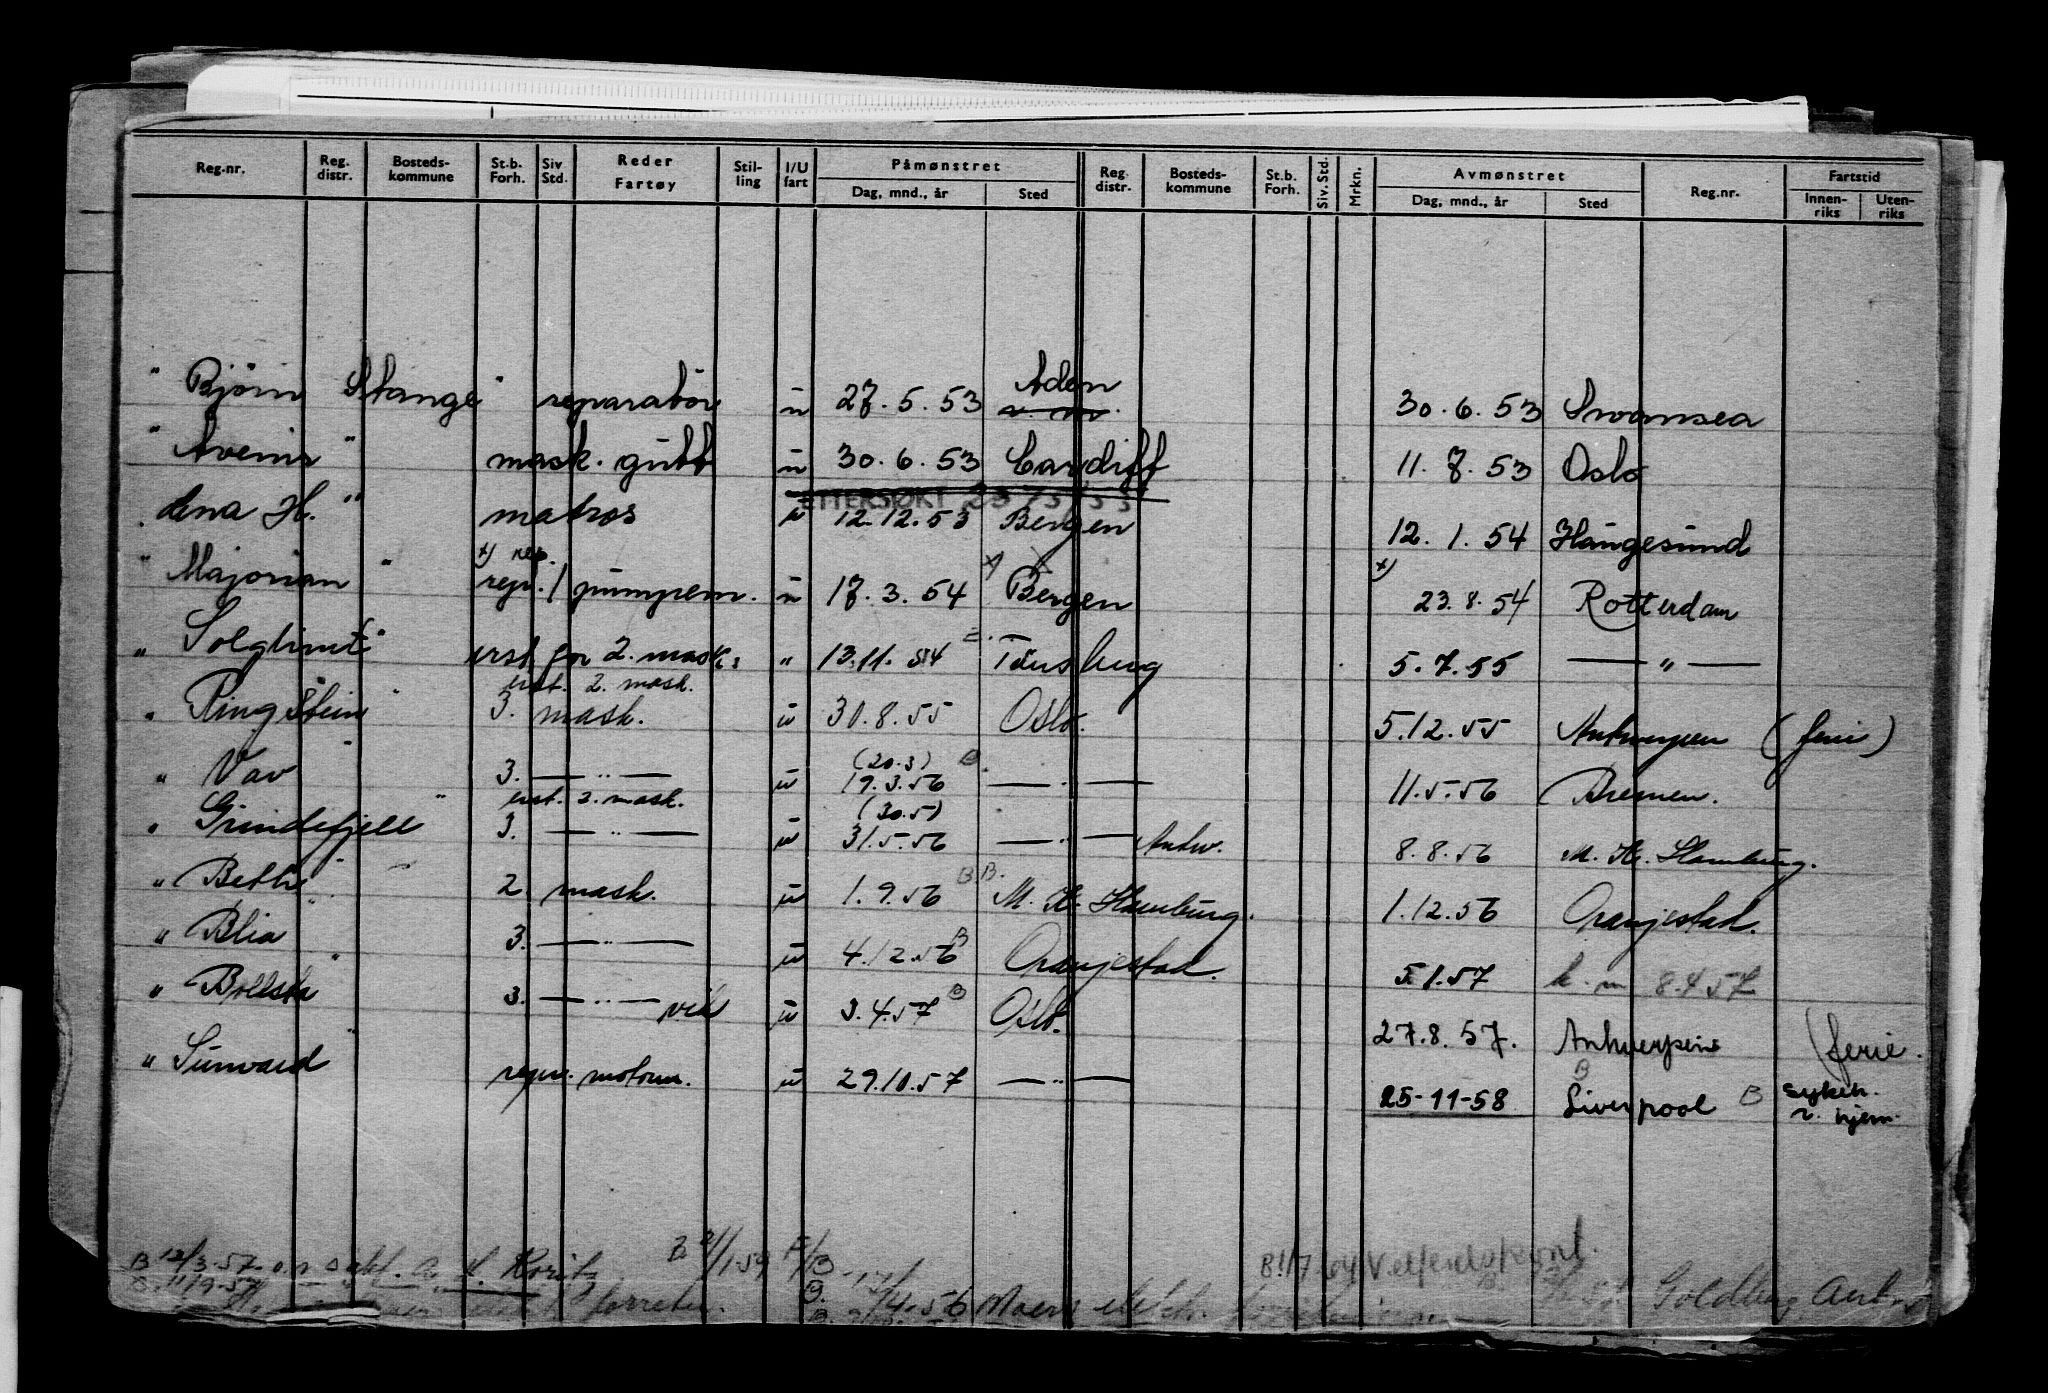 Reg.nr. Reg. distr. Bosteds- kommune St.b. Forh. Siv Std. Reder Fartøy Stil- ling I/U fart Påmønstret Dag, mnd., år Sted Reg. distr. Bosteds- kommune St.b. Forh. Siv. Std. Mrkn. Avmønstret Dag, mnd., år Sted Reg.nr. Fartstid Innen- riks Uten- riks
" Björn Stange " reparatör u 27.5.53 Aden 30.6.53 Swansea
" Avenir " mask. gutt u 30.6.53 Cardiff 11.7.53 Oslo
ETTERSØKT
" Lena H. " matros u 12.12.53 Bergen 12.1.54 Haugesund
x) rep.
" Majorian " repr. / pumpem. u 17.3.54 x) Bergen x) 23.8.54 Rotterdam
" Solglimt " erst for 2. mask. " 13.11.54 Tönsberg 5.7.55 — " —
erst. 2. mask.
" Ringstein " 3. mask. u 30.8.55 Oslo. 5.12.55 Antwerpen (ferie)
(20.3) B.
" Vav " 3. — " — u 19.3.56 — " — 11.5.56 Bremen.
erst. 2. mask. (30.5)
" Grindefjell " 3. — " — u 31.5.56 — " — Antw. 8.8.56 M. K. Hamburg.
" Beth " 2. mask. u 1.9.56 B.B. M. K. Hamburg. 1.12.56 Oranjestad.
" Blia " 3. — " — u 4.12.56 B Oranjestad. 5.1.57 k. m 8.4.57
" Bollsta " 3. — " — vik u 3.4.57 B Oslo. 27.8.57. Antwerpen (ferie.
" Sunvard " repr. motorm. u 29.10.57 — " — 25-11-58 B Liverpool B sykeh. r. hjem.
B 12/3-57. B 2/1-59 F/B B 1/7 64 Velferdskont.
B. 11/9-57 B. /4.56 Goldberg